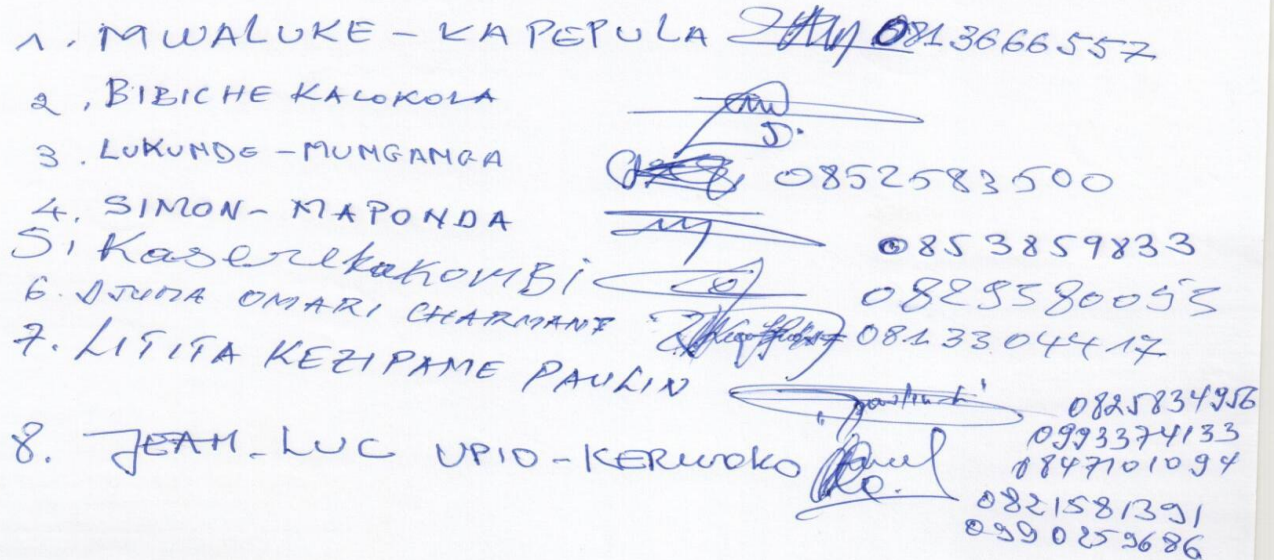 1. MWALUKE - KAPEPULA 0813666557
2. BIBICHE KALOKOLA
3. LUKUNDE - MUNGANGA 0852583500
4. SIMON - MAPONDA 0853859833
5. KaserekaKOMBi 0829580053
6. DJUMA OMARI CHARMANT 0813304417
7. LITITA KEZIPAME PAULIN 0825834956
0993374133
8. JEAN-LUC UPIO-KERWOKO 0847101094
0821581391
0990259686